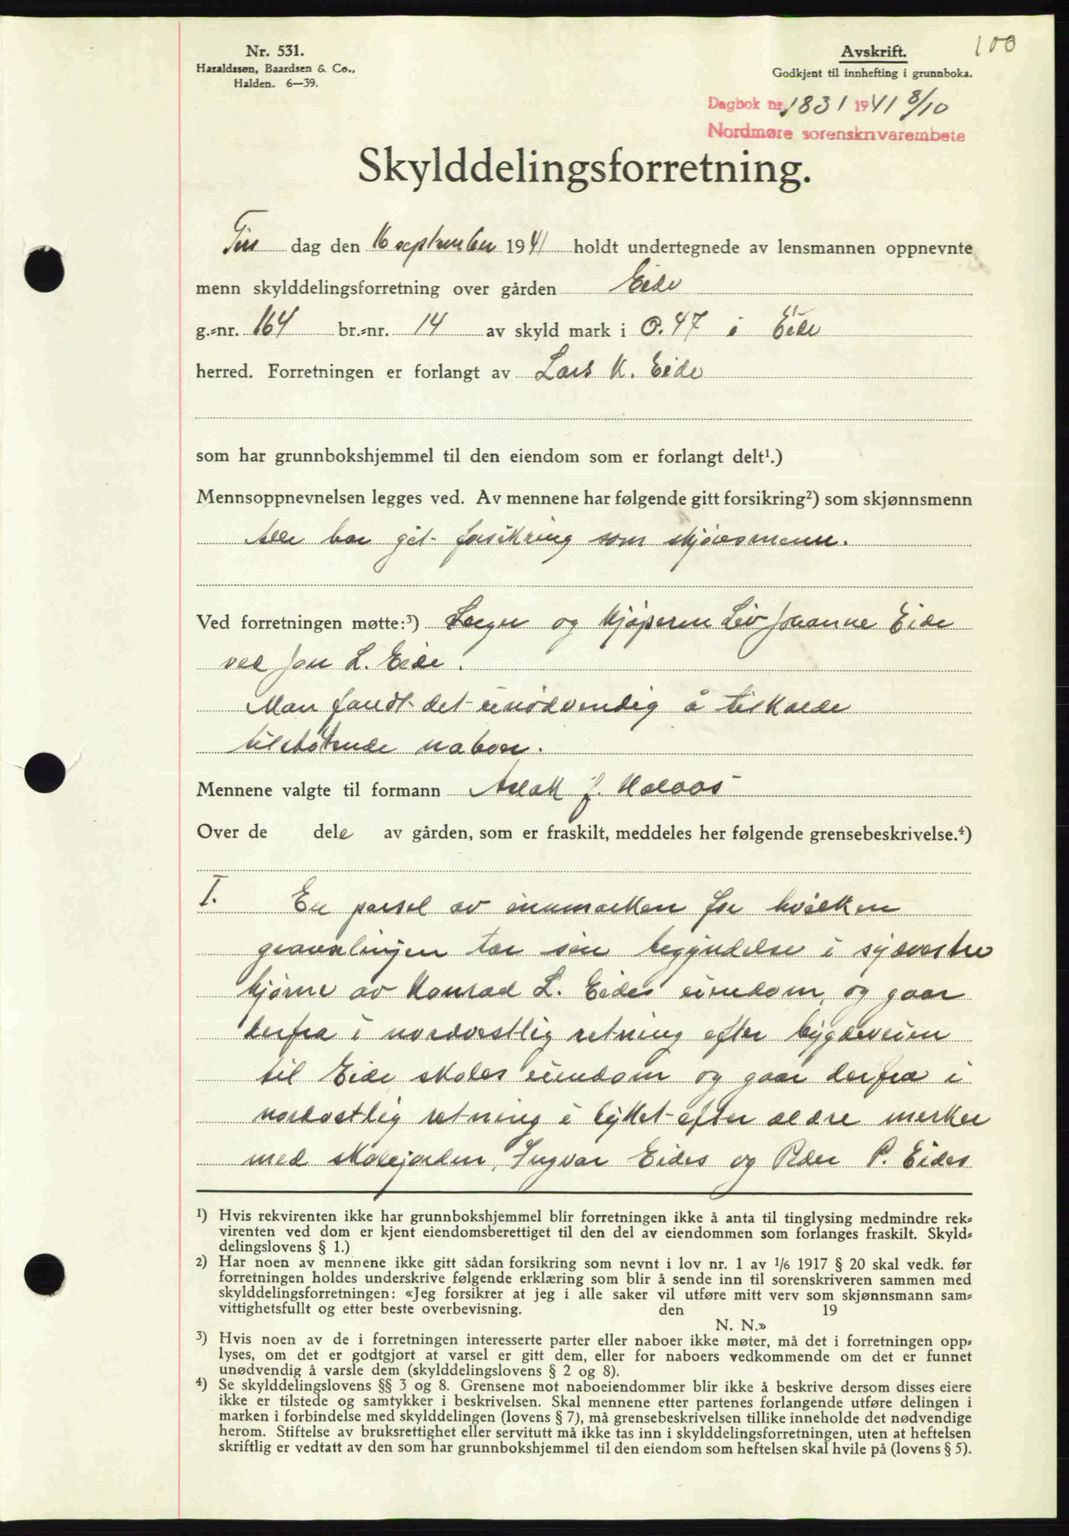 100
Nr. 531.
Haraldssen, Baardsen & Co.,
Halden. 6—39.
Avskrift.
Godkjent til innhefting i grunnboka.
Dagbok nr. 1831 1941 8/10
Nordmøre sorenskrivarembete
Skylddelingsforretning.
Tirs dag den 16 september 1941 holdt undertegnede av lensmannen oppnevnte
menn skylddelingsforretning over gården Eide
g.-nr. 164 br.-nr. 14 av skyld mark i 0.47 i Eide
herred. Forretningen er forlangt av Lars K. Eide
som har grunnbokshjemmel til den eiendom som er forlangt delt¹.)
Mennsoppnevnelsen legges ved. Av mennene har følgende gitt forsikring²) som skjønnsmenn
Alle har git forsikring som skjønsmenn.
Ved forretningen møtte:³) Selger og kjøperen Liv Johanne Eide
ved Jon L. Eide.
Man fandt det unødvendig å tilkalde
tilstøtende naboer.
Mennene valgte til formann Aslak J.
Over de dele av gården, som er fraskilt, meddeles her følgende grensebeskrivelse.⁴)
I. En parsel av innmarken for hvilken
grænselinjen tar sin begyndelse i sydvestre
hjørne av Konrad L. Eides eiendom, og gaar
derfra i nordvestlig retning efter bygdeveien
til Eide skoles eiendom og gaar derfra i
nordostlig retning i byttet efter ældre merker
med skolejorden, Ingvar Eides og Peder P. Eides
¹) Hvis rekvirenten ikke har grunnbokshjemmel blir forretningen ikke å anta til tinglysing medmindre rek-
virenten ved dom er kjent eiendomsberettiget til den del av eiendommen som forlanges fraskilt. Skyld-
delingslovens § 1.)
²) Har noen av mennene ikke gitt sådan forsikring som nevnt i lov nr. 1 av ¹/₆ 1917 § 20 skal vedk. før
forretningen holdes underskrive følgende erklæring som blir å sende inn til sorenskriveren sammen med
skylddelingsforretningen: «Jeg forsikrer at jeg i alle saker vil utføre mitt verv som skjønnsmann sam-
vittighetsfullt og etter beste overbevisning. den 19
N. N.»
³) Hvis noen av de i forretningen interesserte parter eller naboer ikke møter, må det i forretningen opp-
lyses, om det er godtgjort at varsel er gitt dem, eller for naboers vedkommende om det er funnet
unødvendig å varsle dem (skylddelingslovens § 2 og 8).
⁴) Se skylddelingslovens §§ 3 og 8. Grensene mot naboeiendommer blir ikke å beskrive dersom disses eiere
ikke er tilstede og samtykker i beskrivelsen. Skal mennene etter partenes forlangende utføre delingen i
marken i forbindelse med skylddelingen (lovens § 7), må grensebeskrivelsen tillike inneholde det nødvendige
herom. Stiftelse av bruksrettighet eller servitutt må ikke tas inn i skylddelingsforretningen, uten at heftelsen
skriftlig er vedtatt av den som har grunnbokshjemmel til den eiendom som heftelsen skal hvile på (lovens § 5).